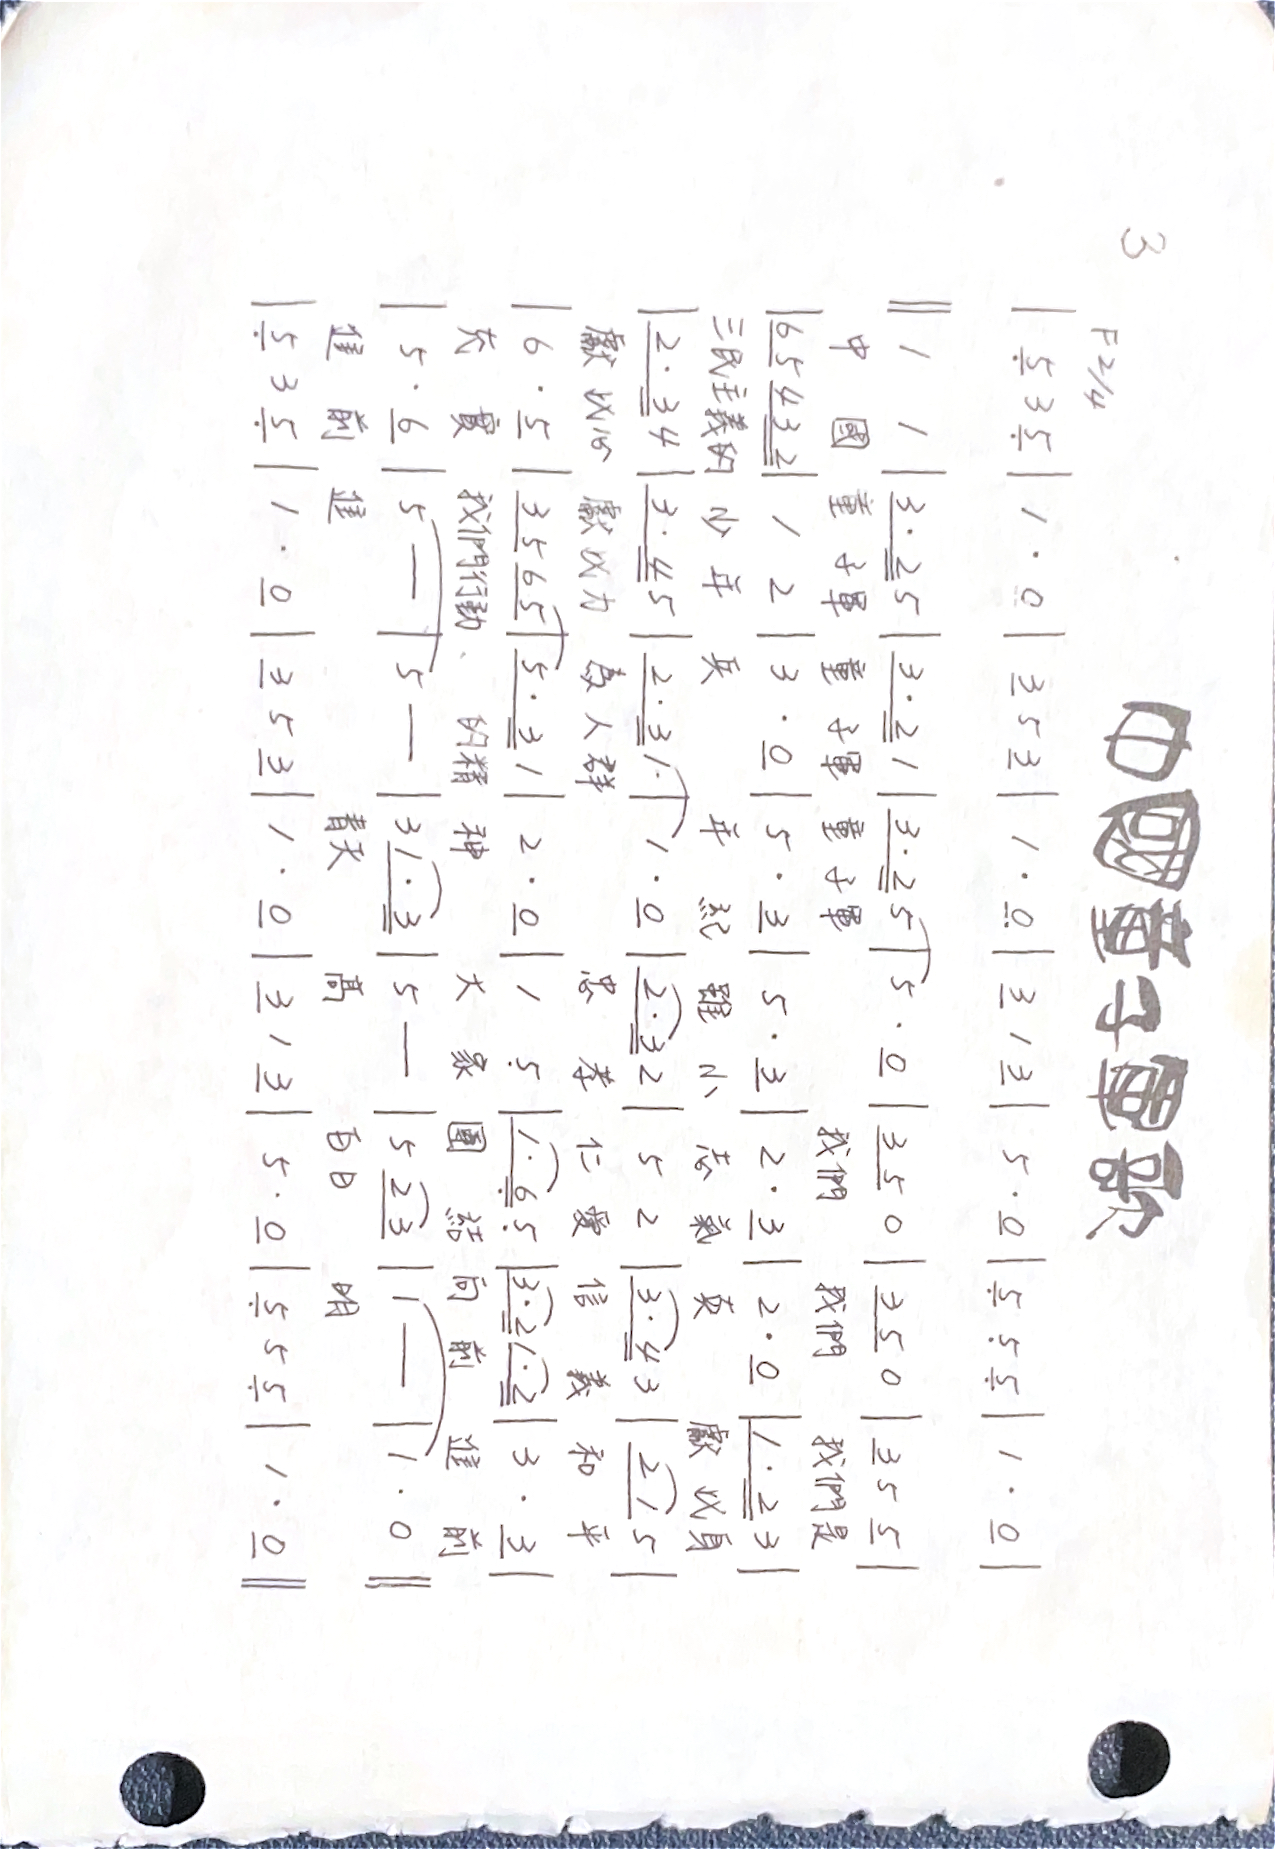 中國童子軍歌
3
F 2/4
| 5 3 5 | 1 · 0 | 3 5 3 | 1 · 0 | 3 1 3 | 5 · 0 | 5 5 5 | 1 · 0 |
‖ 1 1 | 3 · 2 5 | 3 · 2 1 | 3 · 2 5 | 5 · 0 | 3 5 0 | 3 5 0 | 3 5 5 |
中 國 童 子軍 童 子軍 童 子軍 我們 我們 我們是
| 6 5 4 3 2 | 1 2 | 3 · 0 | 5 · 3 | 5 · 3 | 2 · 3 | 2 · 0 | 1 · 2 3 |
三民主義的 少 年 兵 年 紀 雖 小 志 氣 真 獻 此身
| 2 · 3 4 | 3 · 4 5 | 2 · 3 1 · | 1 · 0 | 2 · 3 2 | 5 2 | 3 · 4 3 | 2 1 5 |
獻 此心 獻 此力 為 人 群 忠 孝 仁 愛 信 義 和 平
| 6 · 5 | 3 5 6 5 | 5 · 3 1 | 2 · 0 | 1 5 | 1 · 6 5 | 3 · 2 1 · 2 | 3 · 3 |
充 實 我們行動、 的精 神 大 家 團 結 向 前 進 前
| 5 · 6 | 5 — | 5 — | 3 1 · 3 | 5 — | 5 2 3 | 1 — | 1 · 0 ‖
進 前 進 青天 高 白日 明
| 5 3 5 | 1 · 0 | 3 5 3 | 1 · 0 | 3 1 3 | 5 · 0 | 5 5 5 | 1 · 0 ‖